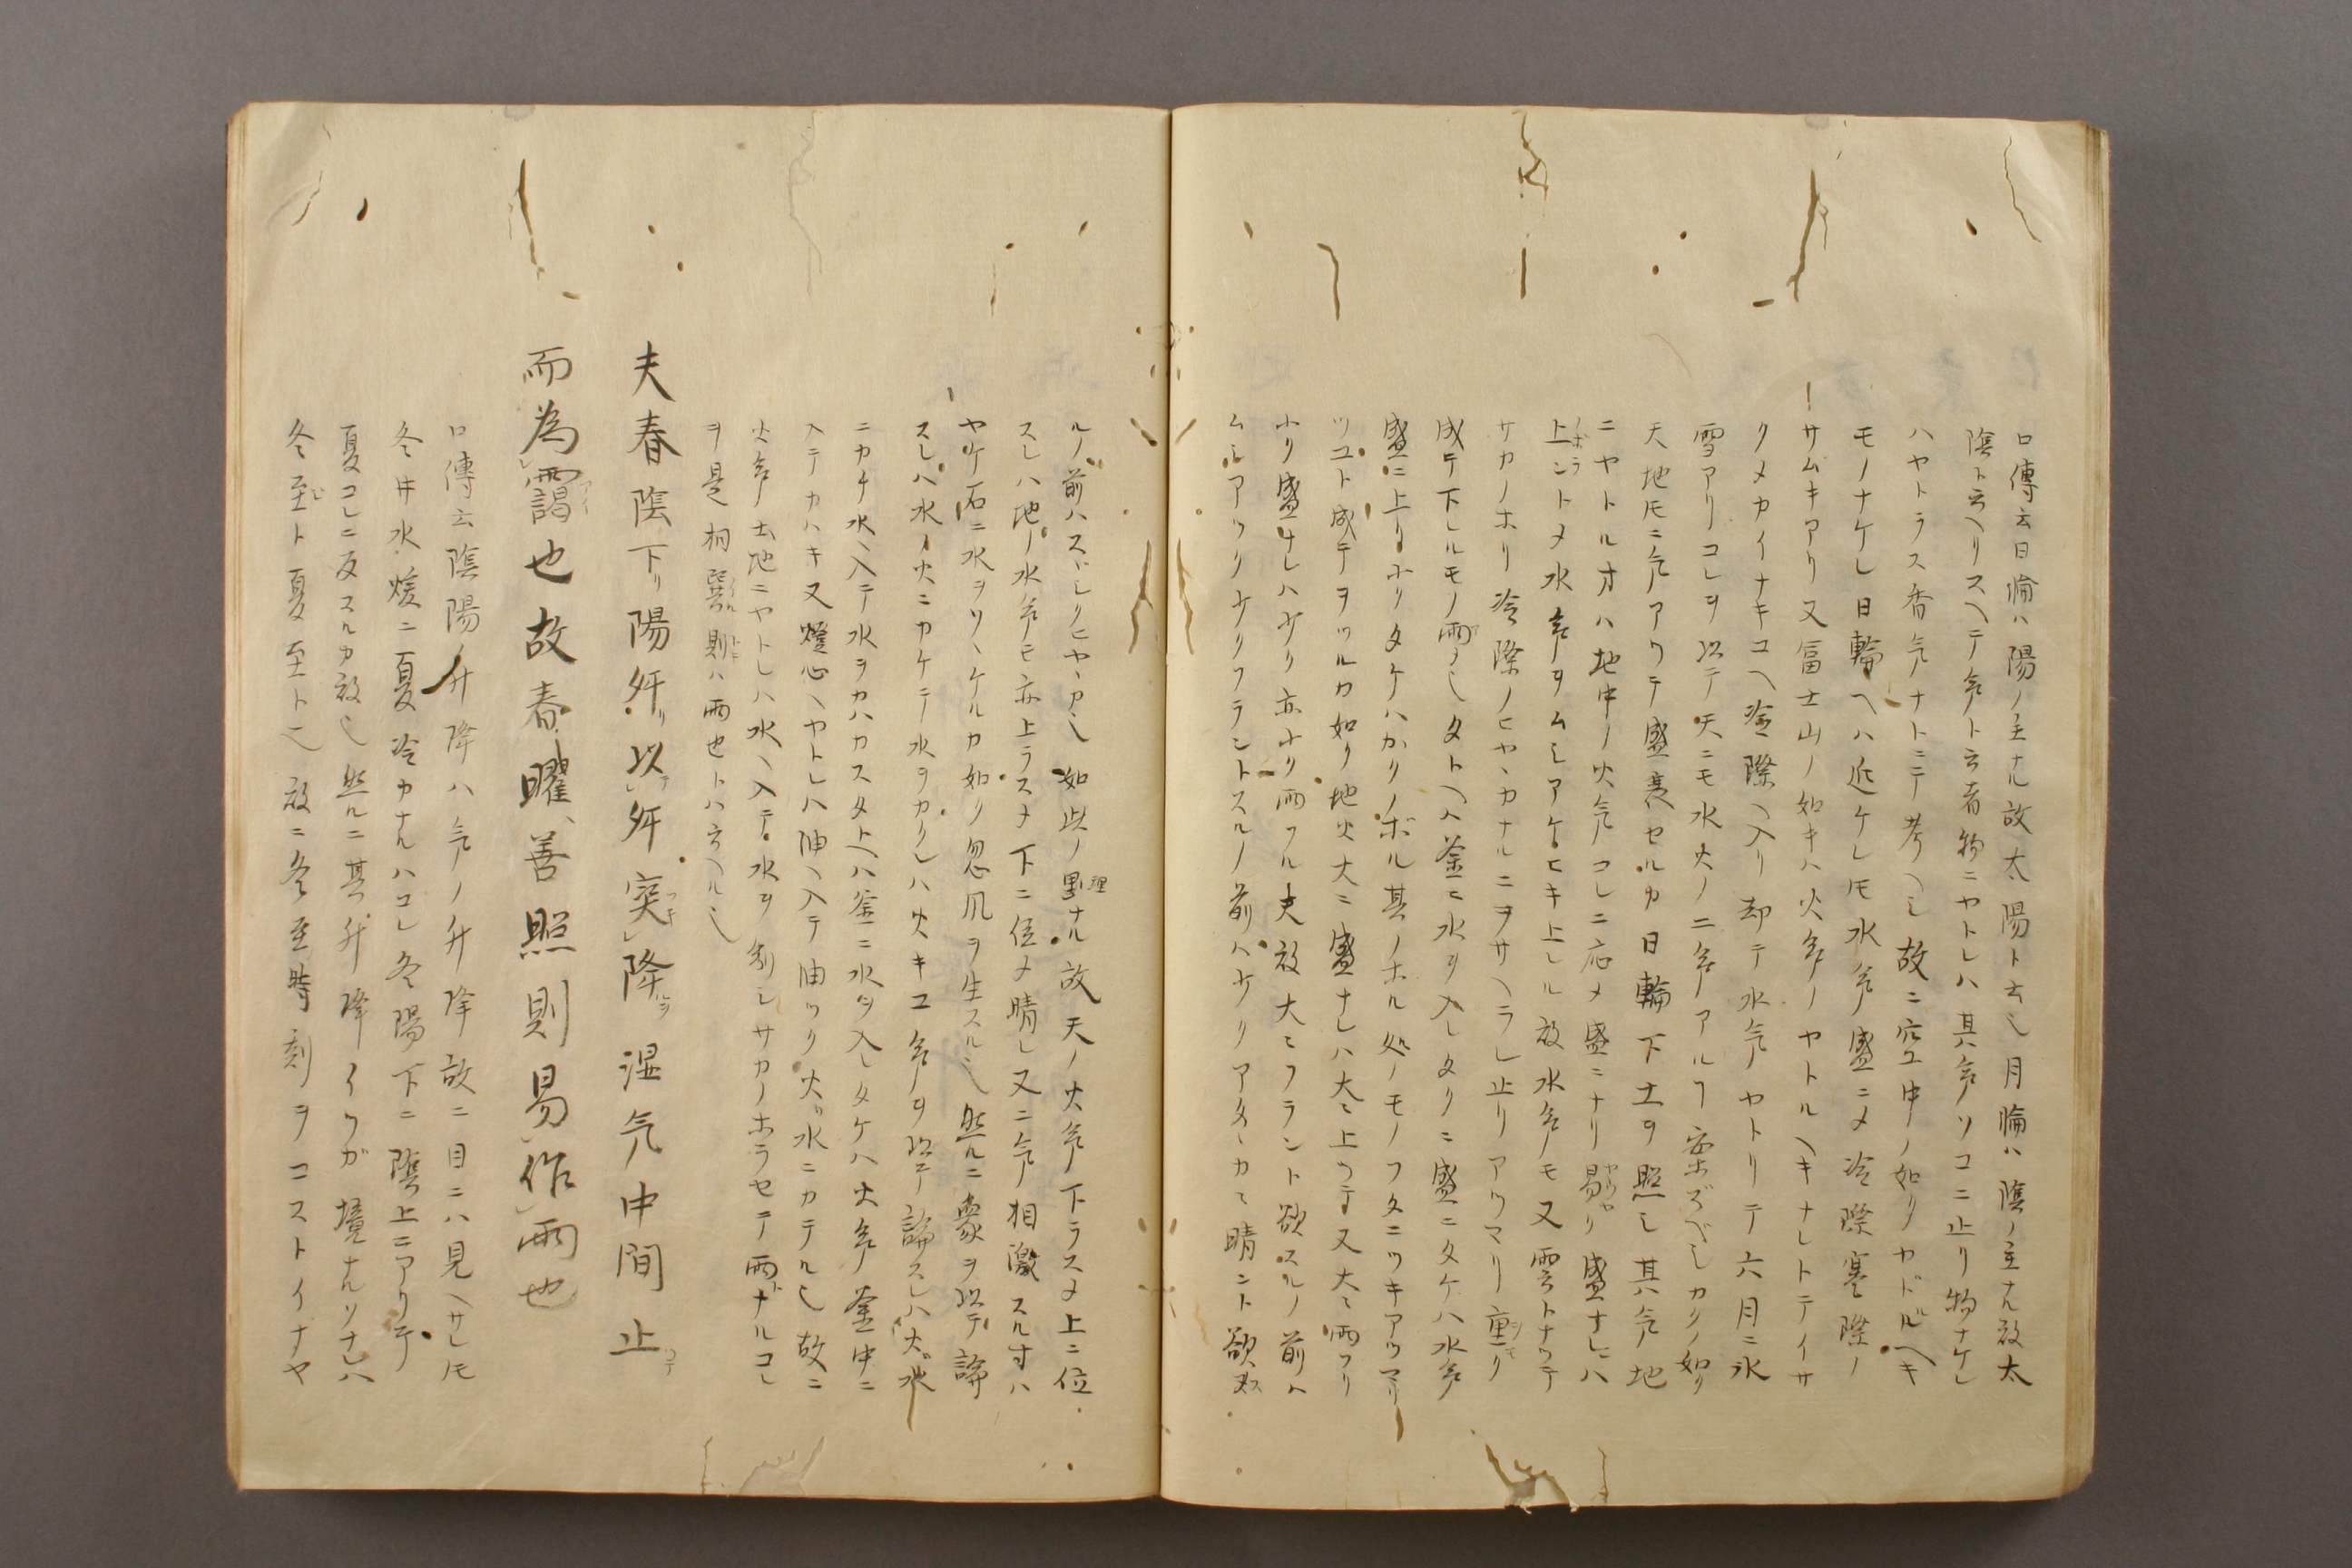 口傳云日輪ハ陽ノ主ナル故太陽ト云也月輪ハ陰ノ主ナル故太
陰ト云ヘリスヘテ氣ト云者物ニヤトレハ其氣ソコニ止リ物ナケレ
ハヤトラス香氣ナトニテ考ヘシ故ニ空中ノ如クヤドルヘキ
モノナケレ日輪ヘハ近ケレ𪜈水氣盛ニメ冷際寒際ノ
サムキアリ又冨士山ノ如キハ火氣ノヤトルヘキナレトテイサ
クメカイナキユヘ冷際ヘ入リ却テ水氣ノヤトリテ六月ニ氷
雪アリコレヲ以テ天ニモ水火ノ二氣アルヿ案ズベシカクノ如ク
天地𪜈ニ氣アツテ盛衰セルカ日輪下土ヲ照シ其氣地
ニヤトル寸ハ地中ノ火氣コレニ応メ盛ニナリ易リ盛ナレハ
上ントメ水氣ヲムシアケヒキ上レル故水氣モ又雲トナツテ
サカノホリ冷際ノヒヤヽカナルニヲサヘラレ止リアツマリ重リ
成テ下レルモノ雨也タトヘハ釜ニ水ヲ入レタクニ盛ニタケハ水氣
盛ニ上リ小クタケハカクノボル其ノホル処ノモノフタニツキアツマリ
ツユト成テヲツルカ如ク地火大ニ盛ナレハ大ニ上ツテ又大ニ雨フリ
小ク盛ナレハ小ク亦小ク雨フル夫故大ニフラント欲スルノ前ハ
ムシアツク小クフラントスルノ前ハ小クアタヽカニ晴ント欲ス
ルノ前ハスヾシクヒヤヽカ也如此ノ理ナル故天ノ火氣下ラスメ上ニ位
スレハ地ノ水氣モ亦上ラスメ下ニ位メ晴レ又二氣相激スル寸ハ
ヤケ石ニ水ヲソヽケルカ如ク忽風ヲ生スル也然ルニ象ヲ以テ論
スレハ水ノ火ニカケテ水ヲカクレハ火キユ氣ヲ以テ論スレハ火水
ニカチ水ヘ入テ水ヲカハカスタトヘハ釜ニ水ヲ入レタケハ火氣釜中ニ
入テカハキ又燈心ヘヤトレハ油ヘ入テ油ツク火水ニカテル也故ニ
火氣土地ニヤトレハ水ヘ入テ水ヲ制シサカノホラセテ雨ナルコレ
ヲ是相襲則ハ雨也トハ云ヘル也
夫春陰下リ陽舛リ以舛突降湿氣中間止
而為靄也故春曜善照則易作雨也
口傳云陰陽ノ升降ハ氣ノ升降故ニ目ニハ見ヘサレ𪜈
冬井水煖ニ夏冷カナルハコレ冬陽下ニ陰上ニアリテ
夏コレニ反スルカ故也然ルニ其升降イツガ境ナルソナレハ
冬至ト夏至ト也故ニ冬至時刻ヲコストイナヤ